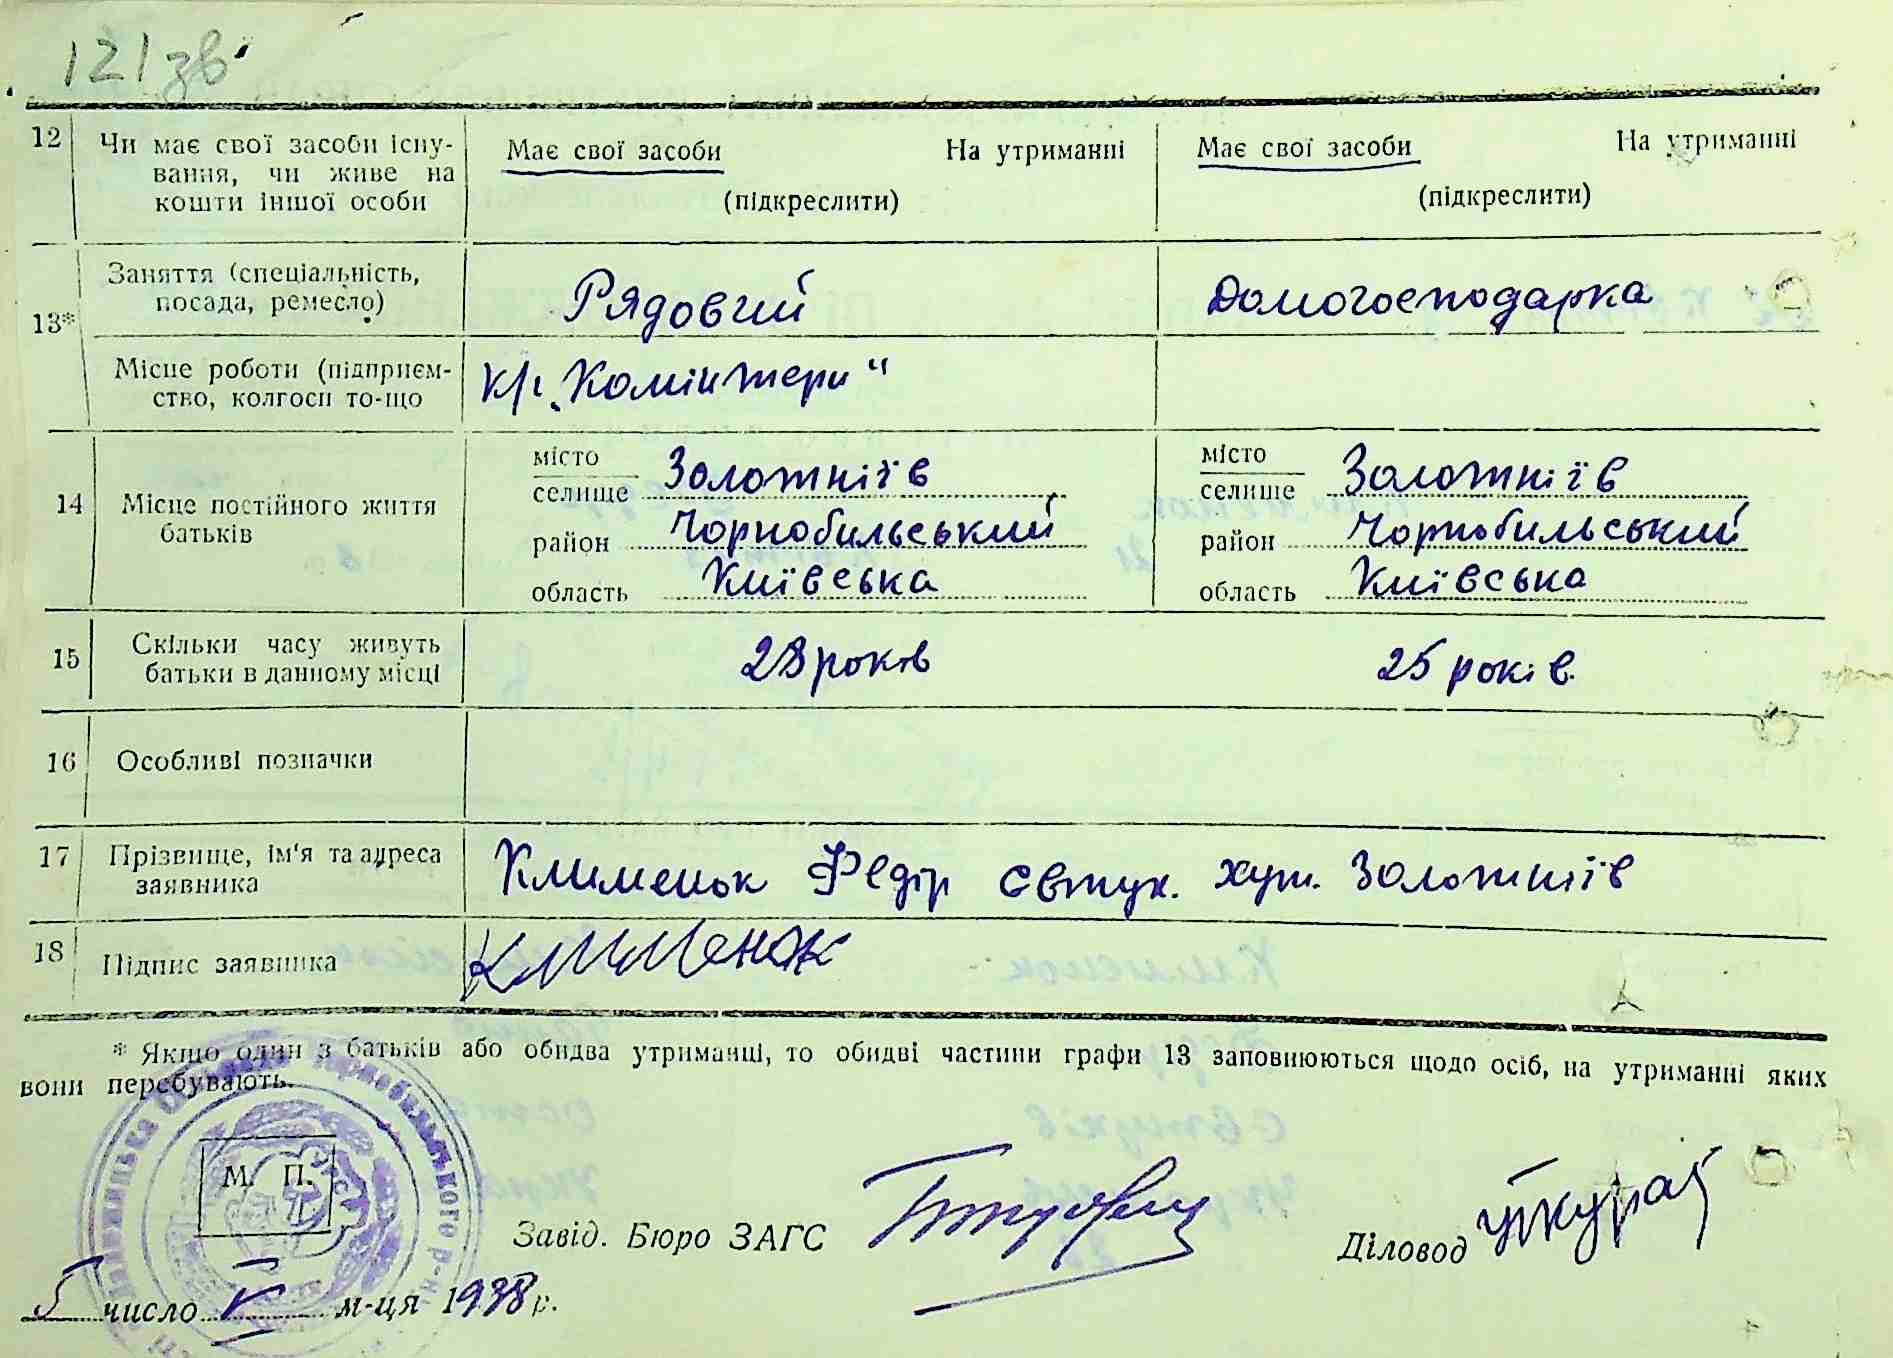 121 зв
12 Чи має свої засоби існу-
вання, чи живе на
кошти іншої особи
Має свої засоби На утриманні
(підкреслити)
Має свої засоби На утриманні
(підкреслити)
13* Заняття (спеціальність,
посада, ремесло)
Рядовий
Домогосподарка
Місце роботи (підприєм-
ство, колгосп то-що
к/г „Комінтерн“
14 Місце постійного життя
батьків
місто
селище Золотніїв
район Чорнобильський
область Київська
місто
селище Золотніїв
район Чорнобильський
область Київська
15 Скільки часу живуть
батьки в данному місці
28 років
25 років.
16 Особливі позначки
17 Прізвище, ім'я та адреса
заявника
Клименок Федір Євтух. хут. Золотніїв
18 Підпис заявника
Клименок
* Якщо один з батьків або обидва утриманці, то обидві частини графи 13 заповнюються щодо осіб, на утриманні яких
вони перебувають.
М. П.
Чорнобильського р-н
Завід. Бюро ЗАГС
Діловод
5 число V м-ця 1938 р.